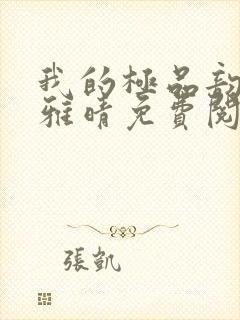 我的極品
雅晴免費閱
張凱